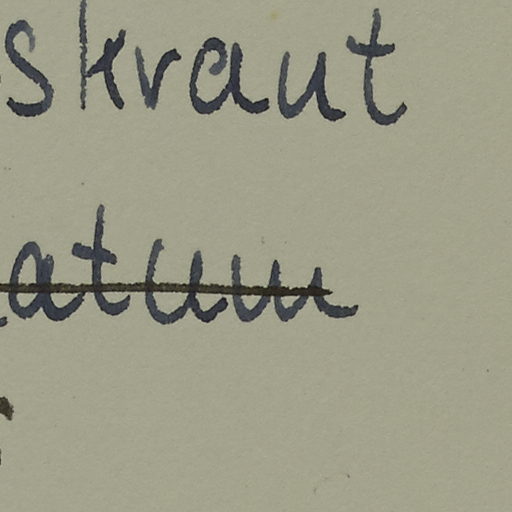 skraut
atum